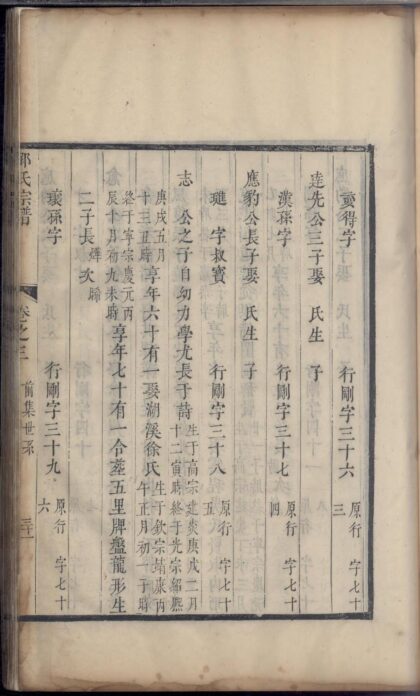 寔得字　行剛字三十六　原行　字七十三
逵先公三子娶　氏生　子
漢孫字　行剛字三十七　原行　字七十四
應豹公長子娶　氏生　子
璡　字叔寳　行剛字三十八　原行　字七十五
志　公之子自幼力學尤長于詩生于高宗建炎庚戌二月十二寅時終于光宗紹熙
庚戌五月十三丑時享年六十有一娶湖溪徐氏生于欽宗靖康丙午正月初一子時
終于寧宗慶元丙辰十月初九未時享年七十有一合塟五里牌盤龍形生
二子長燁次
瓌孫字　行剛字三十九　原行　字七十六
氏宗譜　卷之三　前集世系